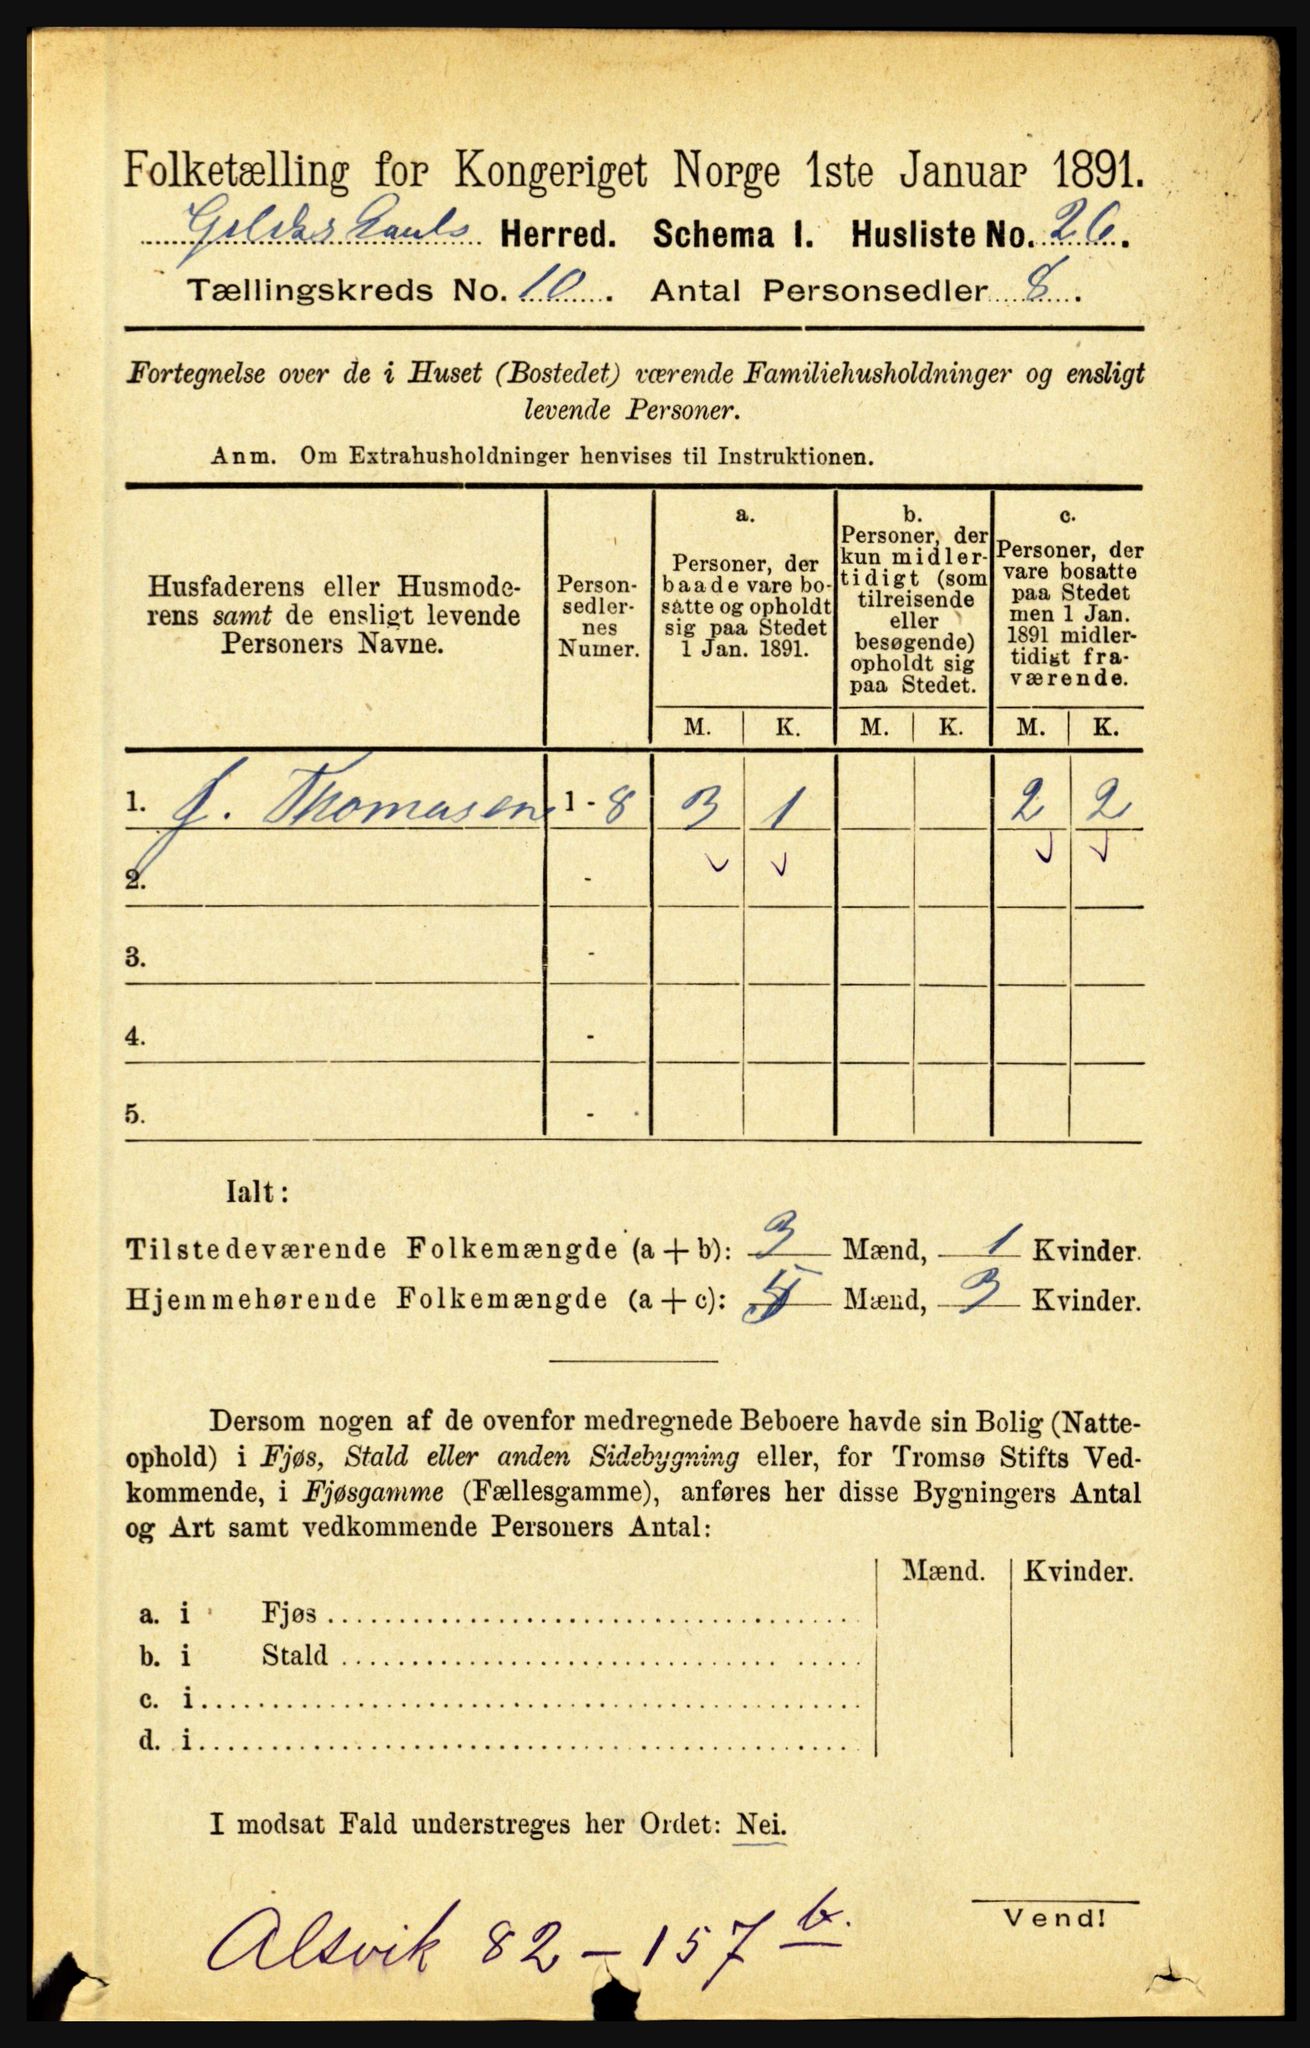 Folketælling for Kongeriget Norge 1ste Januar 1891.
Gildeskaals Herred. Schema I. Husliste No. 26.
Tællingskreds No. 10. Antal Personsedler 8.
Fortegnelse over de i Huset (Bostedet) værende Familiehusholdninger og ensligt
levende Personer.
Anm. Om Extrahusholdninger henvises til Instruktionen.
Husfaderens eller Husmode-
rens samt de ensligt levende
Personers Navne.
Person-
sedler-
nes
Numer.
a.
Personer, der
baade vare bo-
satte og opholdt
sig paa Stedet
1 Jan. 1891.
b.
Personer, der
kun midler-
tidigt (som
tilreisende
eller
besøgende)
opholdt sig
paa Stedet.
c.
Personer, der
vare bosatte
paa Stedet
men 1 Jan.
1891 midler-
tidigt fra-
værende.
M. K. M. K. M. K.
1. J. Thomasen 1 - 8 3 1 2 2
2. -
3. -
4. -
5. -
Ialt:
Tilstedeværende Folkemængde (a + b): 3 Mænd, 1 Kvinder.
Hjemmehørende Folkemængde (a + c): 5 Mænd, 3 Kvinder.
Dersom nogen af de ovenfor medregnede Beboere havde sin Bolig (Natte-
ophold) i Fjøs, Stald eller anden Sidebygning eller, for Tromsø Stifts Ved-
kommende, i Fjøsgamme (Fællesgamme), anføres her disse Bygningers Antal
og Art samt vedkommende Personers Antal:
Mænd. Kvinder.
a. i Fjøs
b. i Stald
c. i
d. i
I modsat Fald understreges her Ordet: Nei.
Vend!
Alsvik 82 - 157 b.